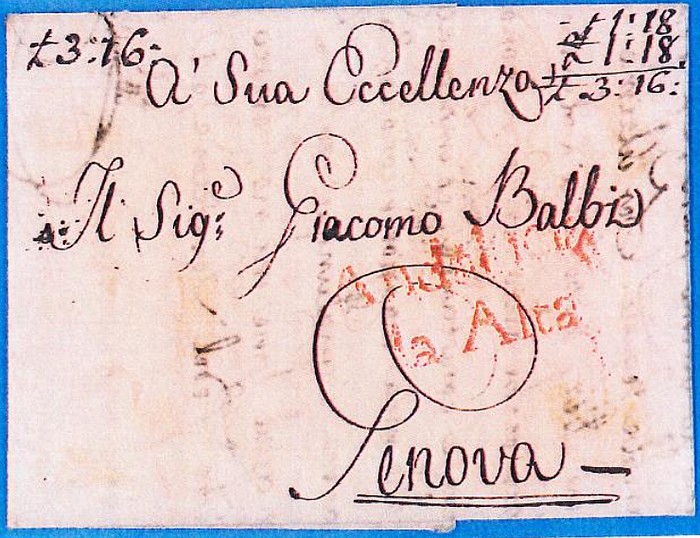 £3:16:
£ 1:18
£ 1:18
£ 3:16:
A' Sua Eccellenza
Il Sigr: Giacomo Balbi
Andalucia
la Alta
Genova